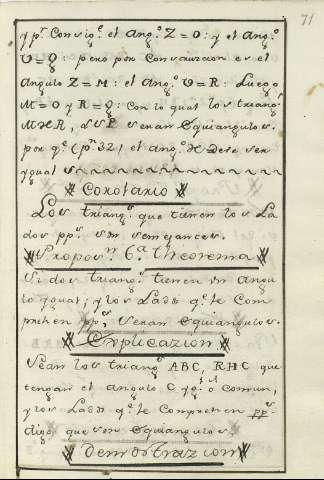 71
y pr. Consigte. el Angº. Z = O: y el Angº.
V = Q: pero por Construccion es el
Angulo Z = M: el Angº. V = R: Luego
M = O y R = Q: Con lo qual los triangs.
MXR, seran Equiangulos.
por qe. (pr. 32) el angº. X Debe ser
ygual
Corolario
Los triangs. que tienen los La
dos pps. son semejantes.
Proposn. 6ª. Theorema
Si dos triangs. tienen un Angu
lo ygual; y los Lados qe. le Com
prehen pps. seran Equiangulos.
Explicazion
Sean los triangs. ABC, RHC que
tengan el Angulo C ygl. ó Comun,
y los Lados qe. le Comprehen pps.
digo que son Equiangulos.
Demostrazion